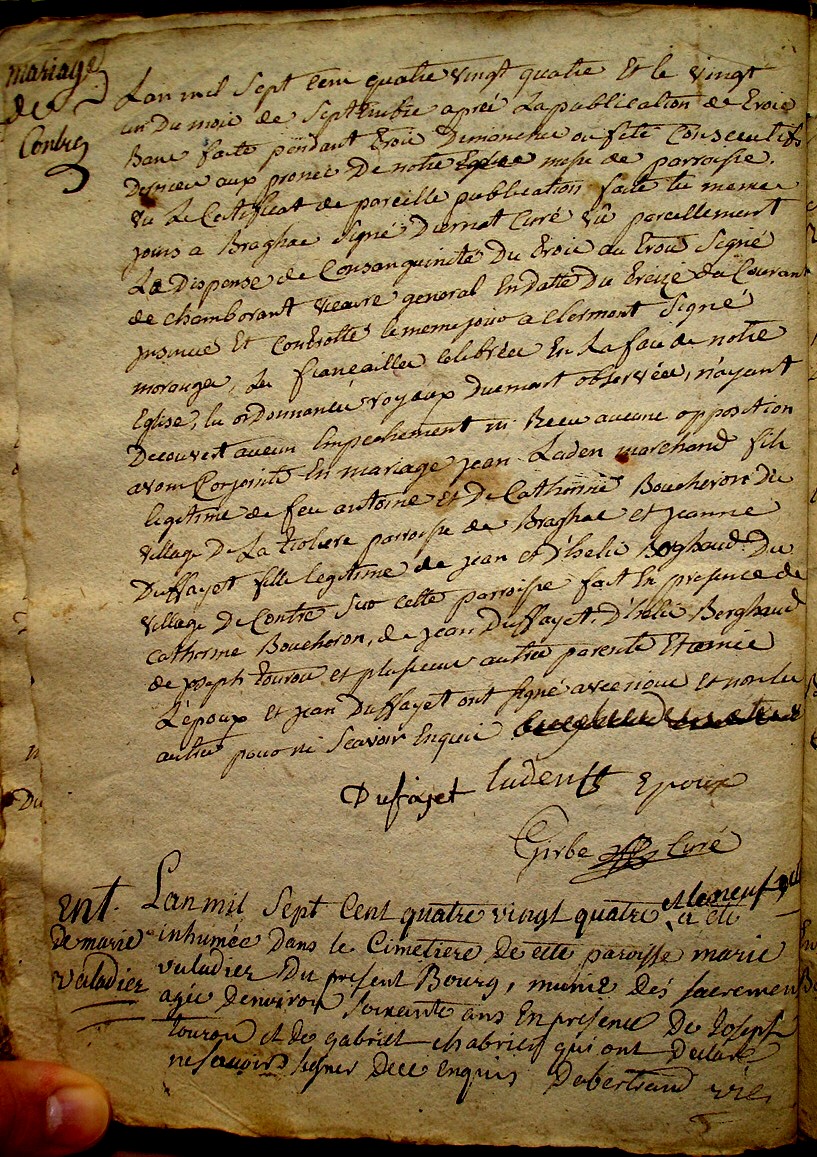 mariage
de
Contre
Lan mil Sept Cent quatre vingt quatre Et le vingt
un Du mois de Septembre aprés La publication de trois
Banc faite pendant trois Dimanches ou fete Consecutifs
Dernier aux prones De notre Eglise messe de parroisse.
vu Le Certificat de pareille publication faite le meme
jours a Braghac Signé Durmat Curé vû pareillement
La Dispense de Consanguinité Du trois au trois Signé
de chamborant vicaire general En datte Du treize du Courant
jnsinué Et Controllé le meme jour a Clermont Signé
moranges, Les fiancailles celebrées En La face de notre
Eglise, les ordonnances royaux Duement observées, n'ayant
Decouvert aucun Empechement ni Receu aucune opposition
avons Conjoints En mariage jean Laden marchand fils
legitime de feu antoine et De Catherine Boucheron Du
village De La parroisse de Braghac et jeanne
Duffayet fille legitime de jean et d'helis Berghaud Du
village De Contre Sur Cette parroisse fait En presence de
Catherine Boucheron, de jean Duffayet, D'helis Berghaud
de joseph tourou et plusieurs autres parents Et amis
L'epoux et jean Duffayet ont signé avec nous et non les
autres pour ni Scavoir Enquis
Dufayet ludent Epoux
Girbe Curé
Ent.
de marie
valadier
Lan mil Sept Cent quatre vingt quatre et le neuf a eté
inhumée Dans le Cimetiere De cette paroisse marie
valadier Du present Bourg, munie Des sacremens
agée Denviron soixante ans En presence De Joseph
tourou et de gabriel chabrier qui ont Declaré
ne savoir signer Dece enquis Debertrand vic